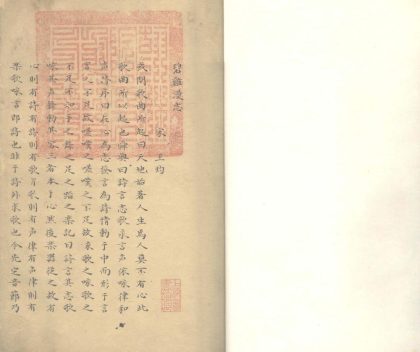 碧雞漫志
宋 王灼
或問歌曲所起曰天地始著人生焉人莫不有心此
歌曲所以起也舜典曰詩言志歌永言声依永律和
声詩序曰在心為志發言為詩情動于中而形于言
言之不足故嗟嘆之嗟嘆之不足故永歌之永歌之
不足不知手之舞之足之蹈之樂記曰詩言其志歌
咏其声舞動其容三者本于心然後樂器從之故有
心則有詩有詩則有歌有歌則有声律有声律則有
樂歌永言即詩也非于詩外求歌也今先定音節乃